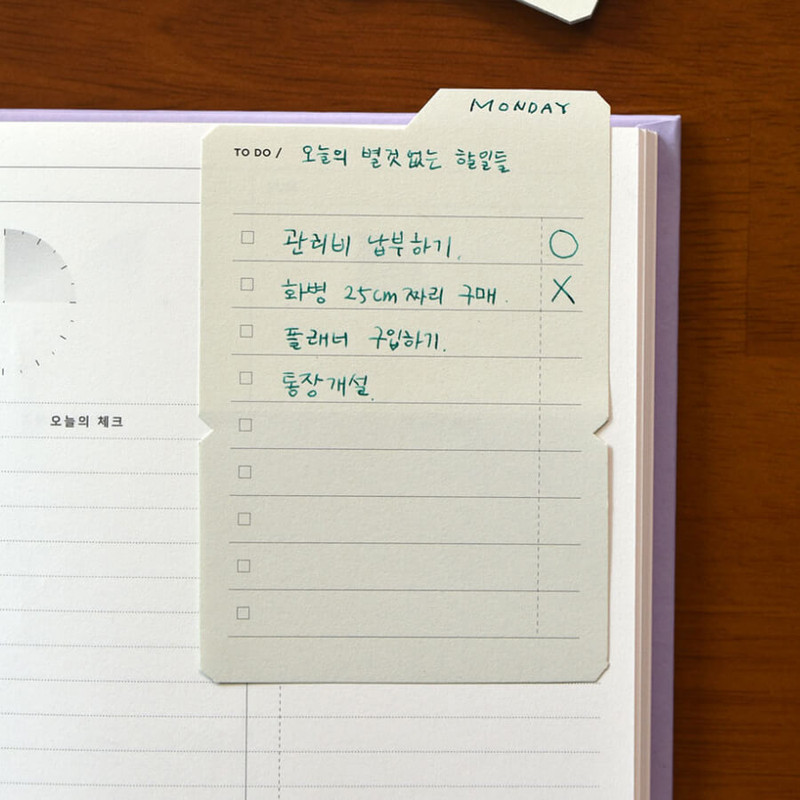 MONDAY
TO DO / 오늘의 별것없는 할일들
관리비 납부하기. O
화병 25cm 짜리 구매. X
플래너 구입하기.
통장개설.
오늘의 체크